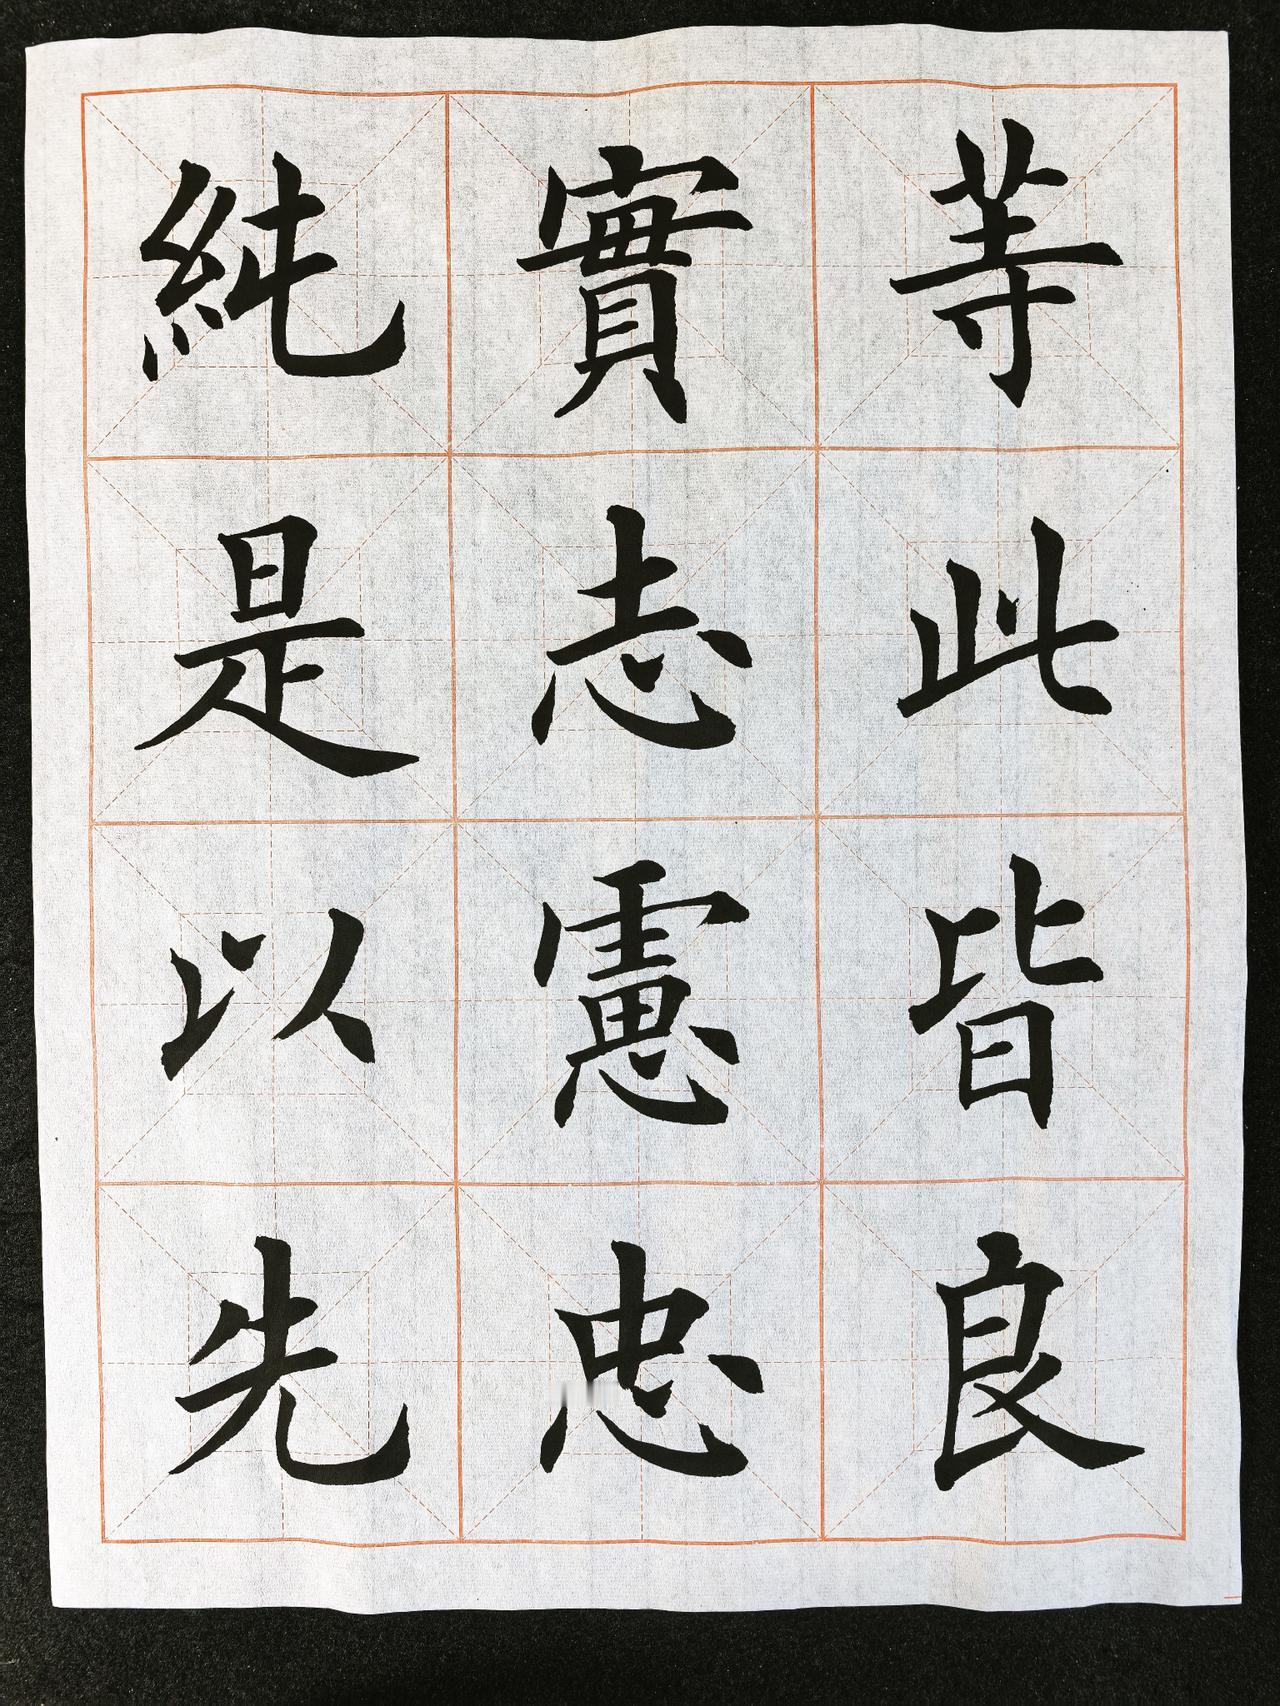 等此皆良
實志慮忠
純是以先